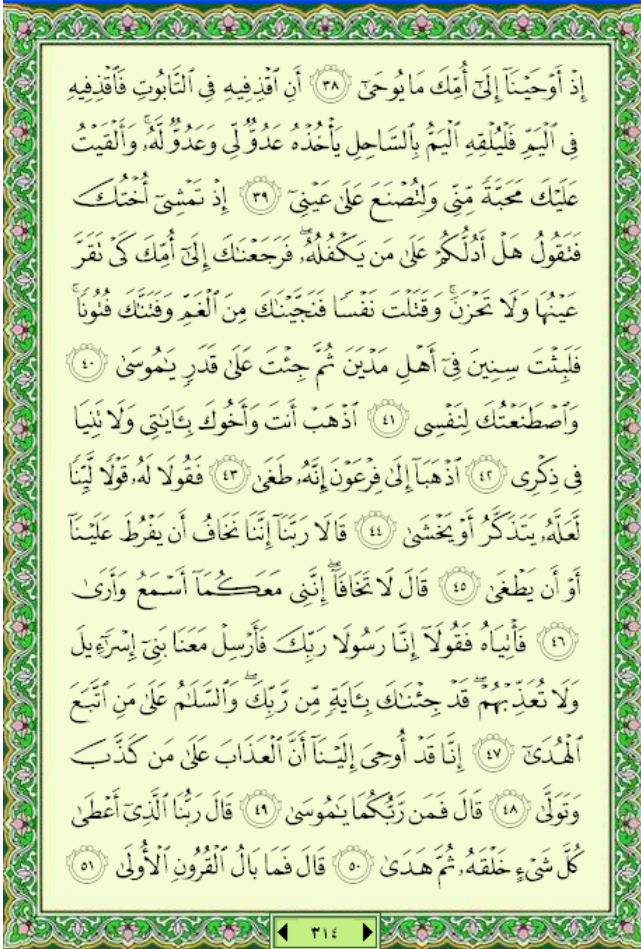 إِذْ أَوْحَيْنَآ إِلَىٰٓ أُمِّكَ مَا يُوحَىٰٓ ٣٨ أَنِ ٱقْذِفِيهِ فِى ٱلتَّابُوتِ فَٱقْذِفِيهِ
فِى ٱلْيَمِّ فَلْيُلْقِهِ ٱلْيَمُّ بِٱلسَّاحِلِ يَأْخُذْهُ عَدُوٌّ لِّى وَعَدُوٌّ لَّهُۥ ۚ وَأَلْقَيْتُ
عَلَيْكَ مَحَبَّةً مِّنِّى وَلِتُصْنَعَ عَلَىٰ عَيْنِىٓ ٣٩ إِذْ تَمْشِىٓ أُخْتُكَ
فَتَقُولُ هَلْ أَدُلُّكُمْ عَلَىٰ مَن يَكْفُلُهُۥ ۖ فَرَجَعْنَٰكَ إِلَىٰٓ أُمِّكَ كَىْ تَقَرَّ
عَيْنُهَا وَلَا تَحْزَنَ ۚ وَقَتَلْتَ نَفْسًا فَنَجَّيْنَٰكَ مِنَ ٱلْغَمِّ وَفَتَنَّٰكَ فُتُونًا ۚ
فَلَبِثْتَ سِنِينَ فِىٓ أَهْلِ مَدْيَنَ ثُمَّ جِئْتَ عَلَىٰ قَدَرٍ يَٰمُوسَىٰ ٤٠
وَٱصْطَنَعْتُكَ لِنَفْسِى ٤١ ٱذْهَبْ أَنتَ وَأَخُوكَ بِـَٔايَٰتِى وَلَا تَنِيَا
فِى ذِكْرِى ٤٢ ٱذْهَبَآ إِلَىٰ فِرْعَوْنَ إِنَّهُۥ طَغَىٰ ٤٣ فَقُولَا لَهُۥ قَوْلًا لَّيِّنًا
لَّعَلَّهُۥ يَتَذَكَّرُ أَوْ يَخْشَىٰ ٤٤ قَالَا رَبَّنَآ إِنَّنَا نَخَافُ أَن يَفْرُطَ عَلَيْنَآ
أَوْ أَن يَطْغَىٰ ٤٥ قَالَ لَا تَخَافَآ ۖ إِنَّنِى مَعَكُمَآ أَسْمَعُ وَأَرَىٰ
٤٦ فَأْتِيَاهُ فَقُولَآ إِنَّا رَسُولَا رَبِّكَ فَأَرْسِلْ مَعَنَا بَنِىٓ إِسْرَٰٓءِيلَ
وَلَا تُعَذِّبْهُمْ ۖ قَدْ جِئْنَٰكَ بِـَٔايَةٍ مِّن رَّبِّكَ ۖ وَٱلسَّلَٰمُ عَلَىٰ مَنِ ٱتَّبَعَ
ٱلْهُدَىٰٓ ٤٧ إِنَّا قَدْ أُوحِىَ إِلَيْنَآ أَنَّ ٱلْعَذَابَ عَلَىٰ مَن كَذَّبَ
وَتَوَلَّىٰ ٤٨ قَالَ فَمَن رَّبُّكُمَا يَٰمُوسَىٰ ٤٩ قَالَ رَبُّنَا ٱلَّذِىٓ أَعْطَىٰ
كُلَّ شَىْءٍ خَلْقَهُۥ ثُمَّ هَدَىٰ ٥٠ قَالَ فَمَا بَالُ ٱلْقُرُونِ ٱلْأُولَىٰ ٥١
٣١٤